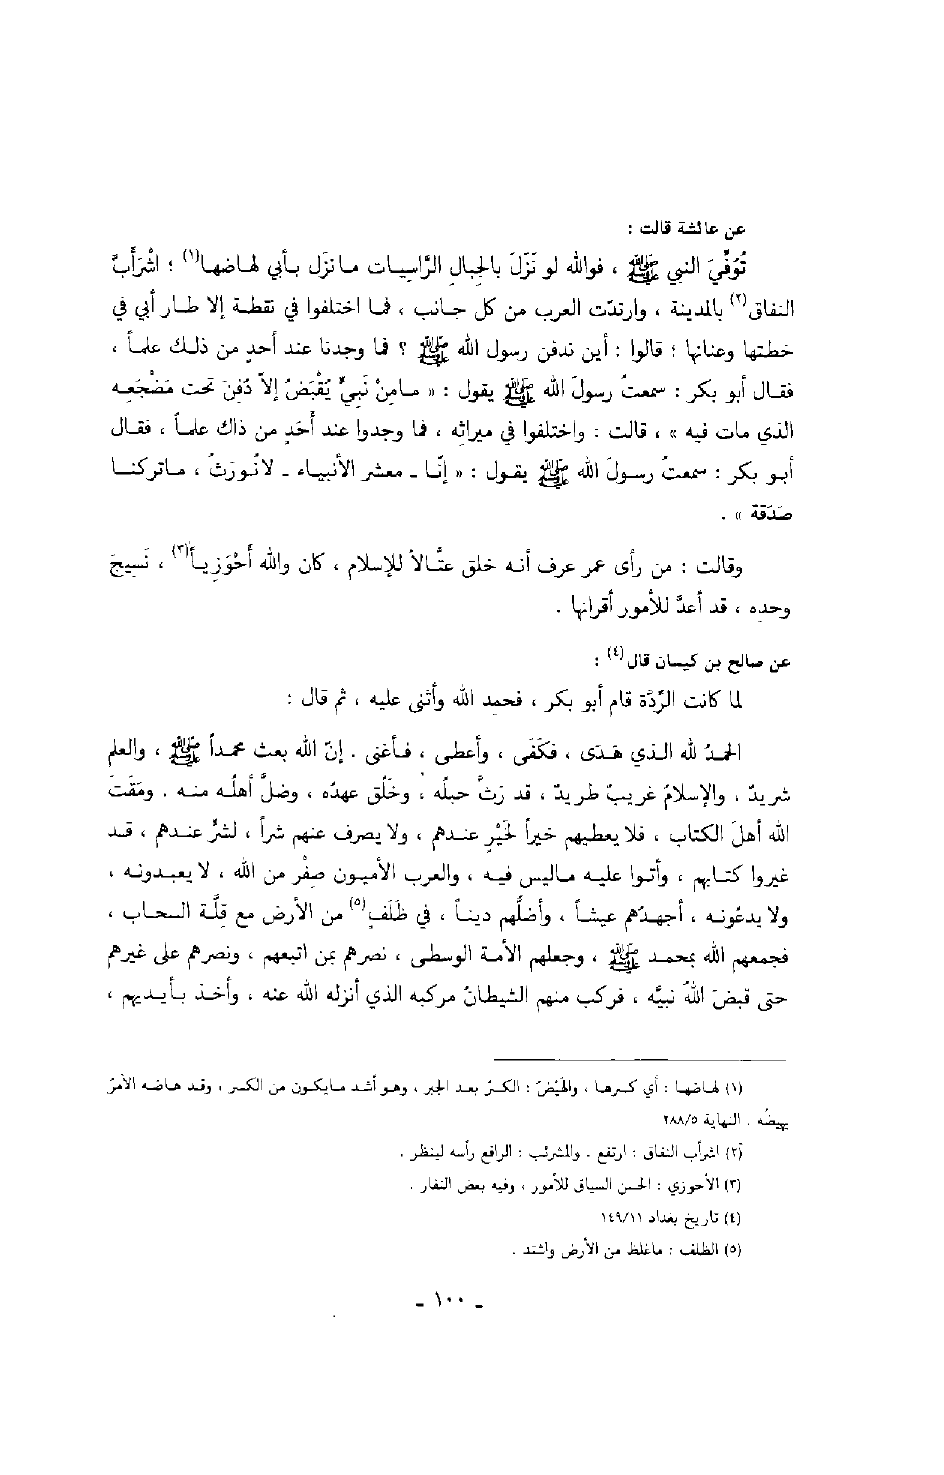 عن عائشة قالت :
تُوُفِّيَ النبي ﷺ ، فوالله لو نَزَلَ بالجبالِ الرّاسِيات مانزل بأبي لهاضها(١) ؛ اشْرَأَبَّ
النفاق(٢) بالمدينة ، وارتدّت العرب من كل جانب ، فما اختلفوا في نقطة إلا طار أبي في
خطتها وعنانها ؛ قالوا : أين ندفن رسول الله ﷺ ؟ فما وجدنا عند أحدٍ من ذلك علماً ،
فقال أبو بكر : سمعتُ رسولَ الله ﷺ يقول : « مامِنْ نَبيٍّ يُقْبَضُ إلاّ دُفِنَ تحت مَضْجَعِه
الذي مات فيه » ، قالت : واختلفوا في ميراثه ، فما وجدوا عند أَحَدٍ من ذاك علماً ، فقال
أبو بكر : سمعتُ رسولَ الله ﷺ يقول : « إنّا ـ معشر الأنبياء ـ لانُورَثُ ، ماتركنا
صَدَقة » .
وقالت : من رأى عمر عرف أنه خلق عَنَّالاً للإسلام ، كان والله أَحْوَزِياً(٣) ، نَسِيجَ
وحدِه ، قد أعدَّ للأمور أقرانها .
عن صالح بن كيسان قال(٤) :
لما كانت الرِّدَّة قام أبو بكر ، فحمِد الله وأثنى عليه ، ثم قال :
الحمدُ لله الذي هَدَى ، فكَفَى ، وأعطى ، فأغنى . إنّ الله بعث محمداً ﷺ ، والعلم
شريدٌ ، والإسلامُ غريبٌ طريدٌ ، قد رَثَّ حبلُه ، وخَلُق عهدُه ، وضلَّ أهلُه منه . ومَقَتَ
الله أهلَ الكتاب ، فلا يعطيهم خيراً لخَيْرٍ عندهم ، ولا يصرف عنهم شراً ، لشرٍّ عندهم ، قد
غيروا كتابهم ، وأتوا عليه ماليس فيه ، والعرب الأميون صِفْر من الله ، لا يعبدونه ،
ولا يدعُونه ، أجهدُهم عيشاً ، وأضلُّهم ديناً ، في ظَلَفٍ(٥) من الأرض مع قِلَّة السحاب ،
فجمعهم الله بمحمد ﷺ ، وجعلهم الأمة الوسطى ، نصرهم بمن اتبعهم ، ونصرهم على غيرهم
حتى قبضَ اللهُ نبيَّه ، فركب منهم الشيطانُ مركبه الذي أنزله الله عنه ، وأخذ بأيديهم ،
(١) لهاضها : أي كسرها ، والهَيْضُ : الكسرُ بعد الجبر ، وهو أشد مايكون من الكسر ، وقد هاضه الأمرُ
يهيضُه . النهاية ٢٨٨/٥
(٢) اشرأب النفاق : ارتفع . والمشرئب : الرافع رأسه لينظر .
(٣) الأحوزي : الحسن السياق للأمور ، وفيه بعض النفار .
(٤) تاريخ بغداد ١٤٩/١١
(٥) الظلف : ماغلظ من الأرض واشتد .
ـ ١٠٠ ـ